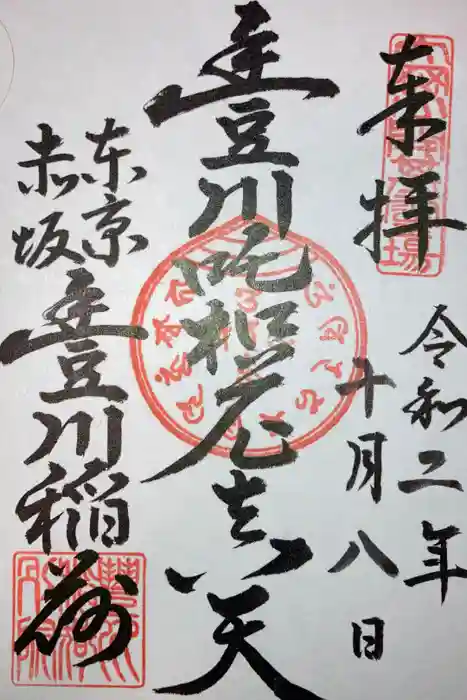 奉拝
令和二年
十月八日
豊川吒枳尼真天
東京
赤坂
豊川稲荷